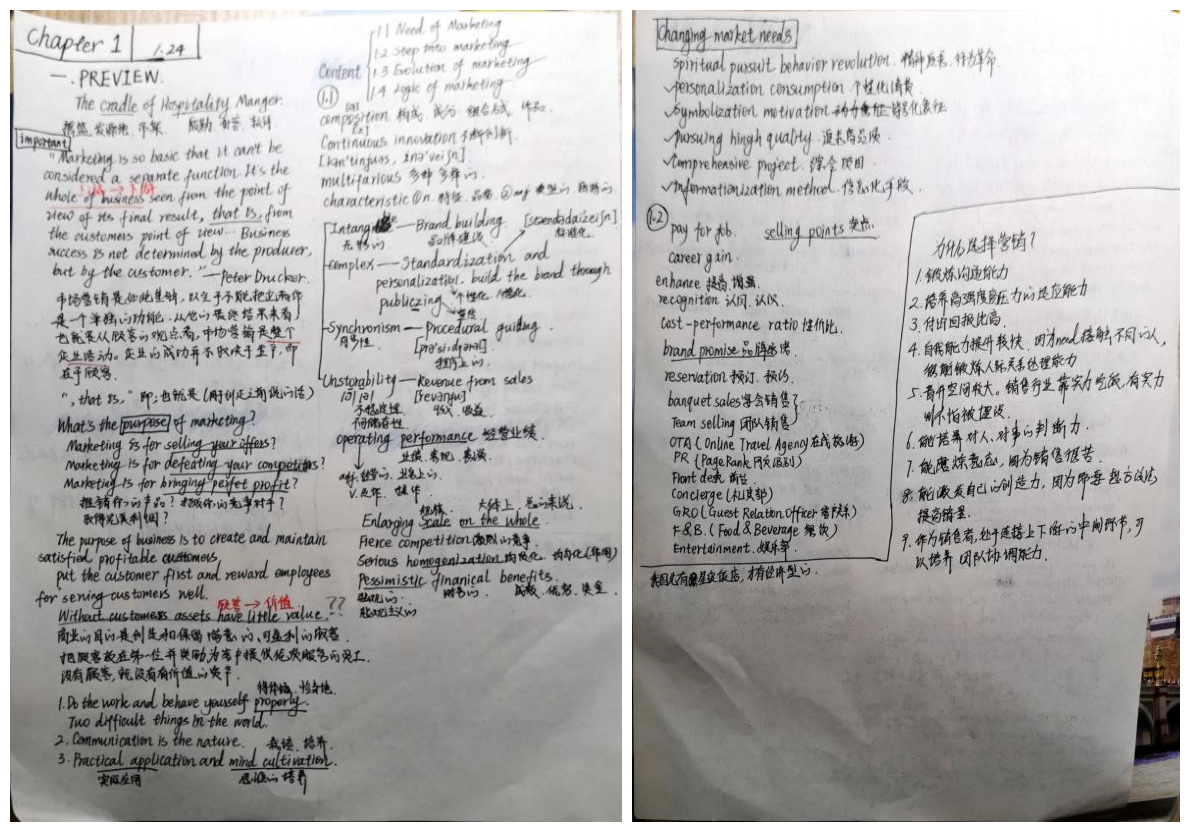 Chapter 1 1.24
一. PREVIEW.
The cradle of Hospitality Manger.
摇篮. 发源地. 吊架. 殷勤. 好客. 款待
important
"Marketing is so basic that it can't be
considered a separate function. It's the
上游 → 下游
whole of business seen from the point of
view of its final result, that is, from
the customers point of view... Business
success is not determined by the producer,
but by the customer." —Peter Drucker.
市场营销是如此基础, 以至于不能把它看作
是一个单独的功能. 从他的最终结果来看,
也就是从顾客的观点看, 市场营销是整个
企业活动。企业的成功并不取决于生产, 而
在于顾客.
", that is, " 即; 也就是
What's the purpose of marketing?
Marketing is for selling your offers?
Marketing is for defeating your competitors?
Marketing is for bringing perfet profit?
推销你的产品? 打败你的竞争对手?
获得完美利润?
The purpose of business is to create and maintain
satisfied profitable customers,
put the customer first and reward employees
for serving customers well.
顾客 → 价值
Without customers assets have little value. ??
商业的目的是创造和保留满意的, 可盈利的顾客.
把顾客放在第一位并奖励为客户提供优质服务的员工.
没有顾客, 就没有有价值的资产.
得体地, 恰当地.
1. Do the work and behave yourself properly.
Two difficult things in the world.
2. Communication is the nature. 栽培. 培养.
3. Practical application and mind cultivation.
实际应用 思维的培养
Content
1.1 Need of Marketing
1.2 Step into marketing
1.3 Evolution of marketing
1.4 Logic of marketing
1.1
composition 构成. 成分. 组合方式. 作品.
Continuous innovation 不断创新.
[kən'tinjuəs, ɪnə'veiʃn]
multifarious 多种多样的.
characteristic ①n. 特征. 品质. ②adj 典型的. 独特的.
Brand building. [stændədaizeiʃn]
无形的. 品牌建设 标准化.
complex — Standardization and
personalization. build the band through
publiczing 个性化
Synchronism — Procedural guiding.
同步性 [prə'si:dʒərəl].
程序上的.
Unstorability — Revenue from sales
[revənju]
不稳定性 收入. 收益.
不可储存性
operating performance 经营业绩
业绩. 表现. 表演.
adj. 经营的. 业务上的.
V. 运作. 操作.
规模. 大体上. 总的来说.
Enlarging Scale on the whole.
Fierce competition 激烈的竞争.
Serious homogenization 同质化. 均匀化(作用)
Pessimistic finanical benefits.
悲观的. 财务的.
悲观主义的.
Changing market needs
spiritual pursuit behavior revolution. 精神追求. 行为革命.
✓personalization consumption 个性化消费.
✓symbolization motivation
✓pursuing hingh quality. 追求高品质.
✓Comprehensive project. 综合项目.
✓Informationization method. 信息化手段.
1.2
pay for job. selling points 卖点.
career gain.
enhance 提高. 增强.
recognition 认同. 认识.
cost-performance ratio 性价比.
brand promise 品牌承诺
reservation 预订. 预约.
banquet sales 宴会销售?
Team selling 团队销售
OTA (Online Travel Agency 在线旅游)
PR (PageRank 网页级别)
Front desk 前台
Concierge (礼宾部)
GRO (Guest Relation Officer 客户关系)
F&B. (Food & Beverage 餐饮)
Entertainment. 娱乐等
为什么选择营销?
1. 锻炼沟通能力
2. 培养高强度高压力的适应能力
3. 付出回报比高.
4. 自我能力提升较快. 因为need接触不同的人,
能锻炼人际关系处理能力
5. 晋升空间较大。销售行业靠实力吃饭, 有实力
则不怕被埋没.
6. 能培养对人、对事的判断力.
7. 能磨炼意志, 因为销售很苦.
8. 能激发自己的创造力, 因为即要想方设法
提高销量.
9. 作为销售者, 处于连接上下游的中间环节, 可
以培养团队协调能力.